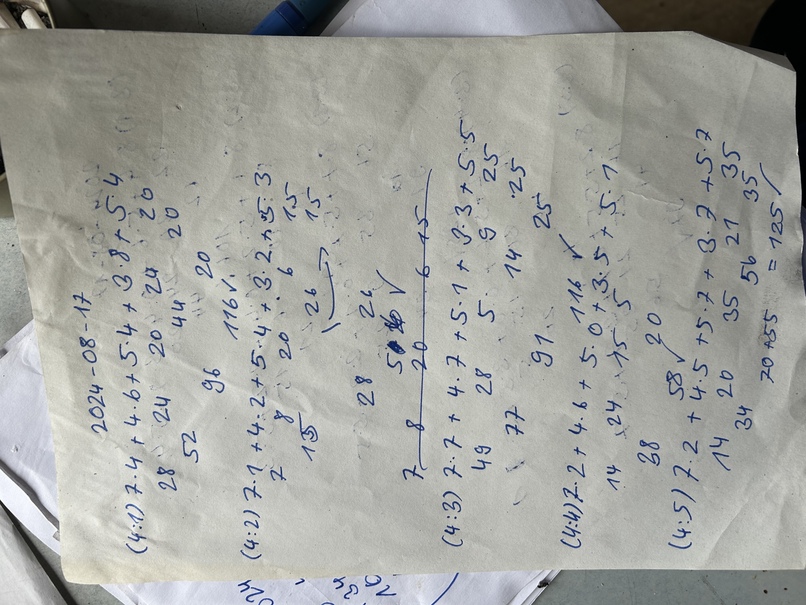 2024-08-17
(4:1) 7·4 + 4·6 + 5·4 + 3·8 + 5·4
28 24 20 24 20
52 44 20
96 20
116 ✓
(4:2) 7·1 + 4·2 + 5·4 + 3·2 + 5·3
7 8 20 6 15
15 26 15
28 26
✓
7 8 20 6 15
(4:3) 7·7 + 4·7 + 5·1 + 3·3 + 5·5
49 28 5 9 25
77 14 25
91 25
116 ✓
(4:4) 7·2 + 4·6 + 5·0 + 3·5 + 5·1
14 24 15 5
38 20
58 ✓
(4:5) 7·2 + 4·5 + 5·7 + 3·7 + 5·7
14 20 35 21 35
34 56 35
70+55 = 125 ✓
024
34
10